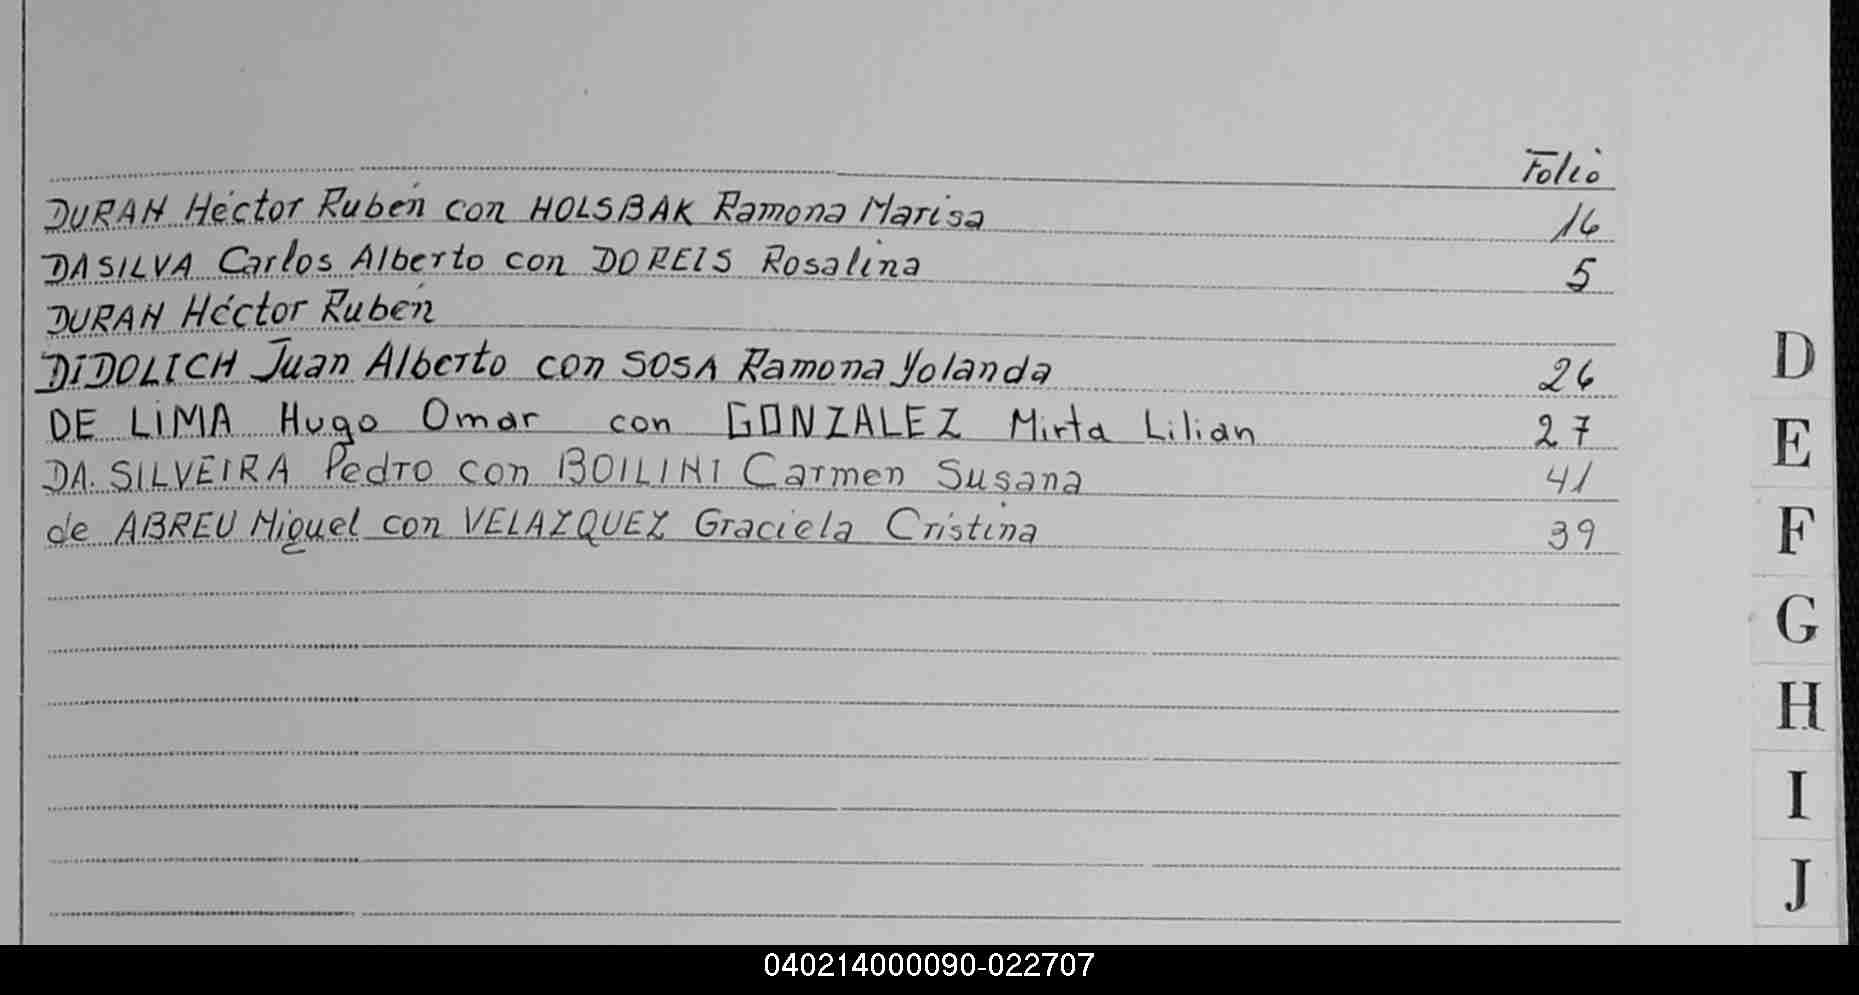 Folio
DURAN Héctor Rubén con HOLSBAK Ramona Marisa 16
DA SILVA Carlos Alberto con DO REIS Rosalina 5
DURAN Héctor Rubén
DIDOLICH Juan Alberto con SOSA Ramona Yolanda 26
DE LIMA Hugo Omar con GONZALEZ Mirta Lilian 27
DA SILVEIRA Pedro con BOILINI Carmen Susana 41
de ABREU Miguel con VELAZQUEZ Graciela Cristina 39
D
E
F
G
H
I
J
040214000090-022707